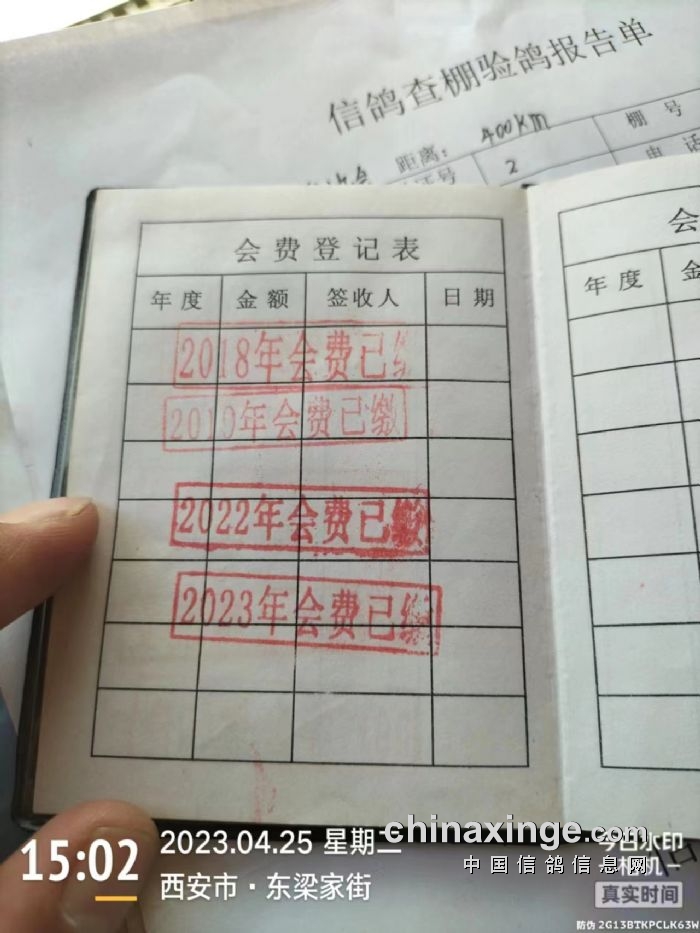 信鸽查棚验鸽报告单
距离： 400km
棚号
证号 2
电话
会费登记表
年度 金额 签收人 日期
2018年会费已缴
2019年会费已缴
2022年会费已缴
2023年会费已缴
会
年度
15:02
2023.04.25 星期二
西安市·东梁家街
chinaxinge.com
中国信鸽信息网
今日水印
相机
真实时间
防伪 2G13BTKPCLK63W